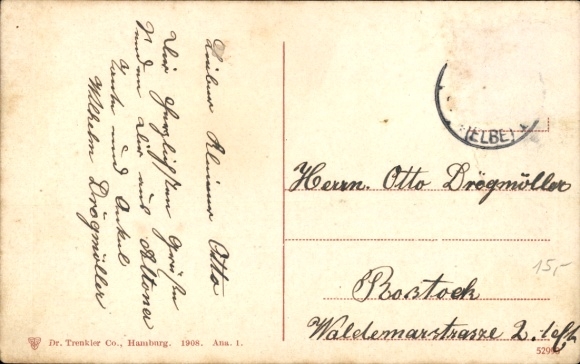 Lieber Kleiner Otto
Die Herzlichsten Grüße
senden Dir aus Altona
Tante und Onkel
Wilhelm Drögmöller
(ELBE)
Herrn. Otto Drögmöller
Rostock
Waldemarstrasze 2. I. Et.
15,-
Dr. Trenkler Co., Hamburg. 1908. Ana. 1.